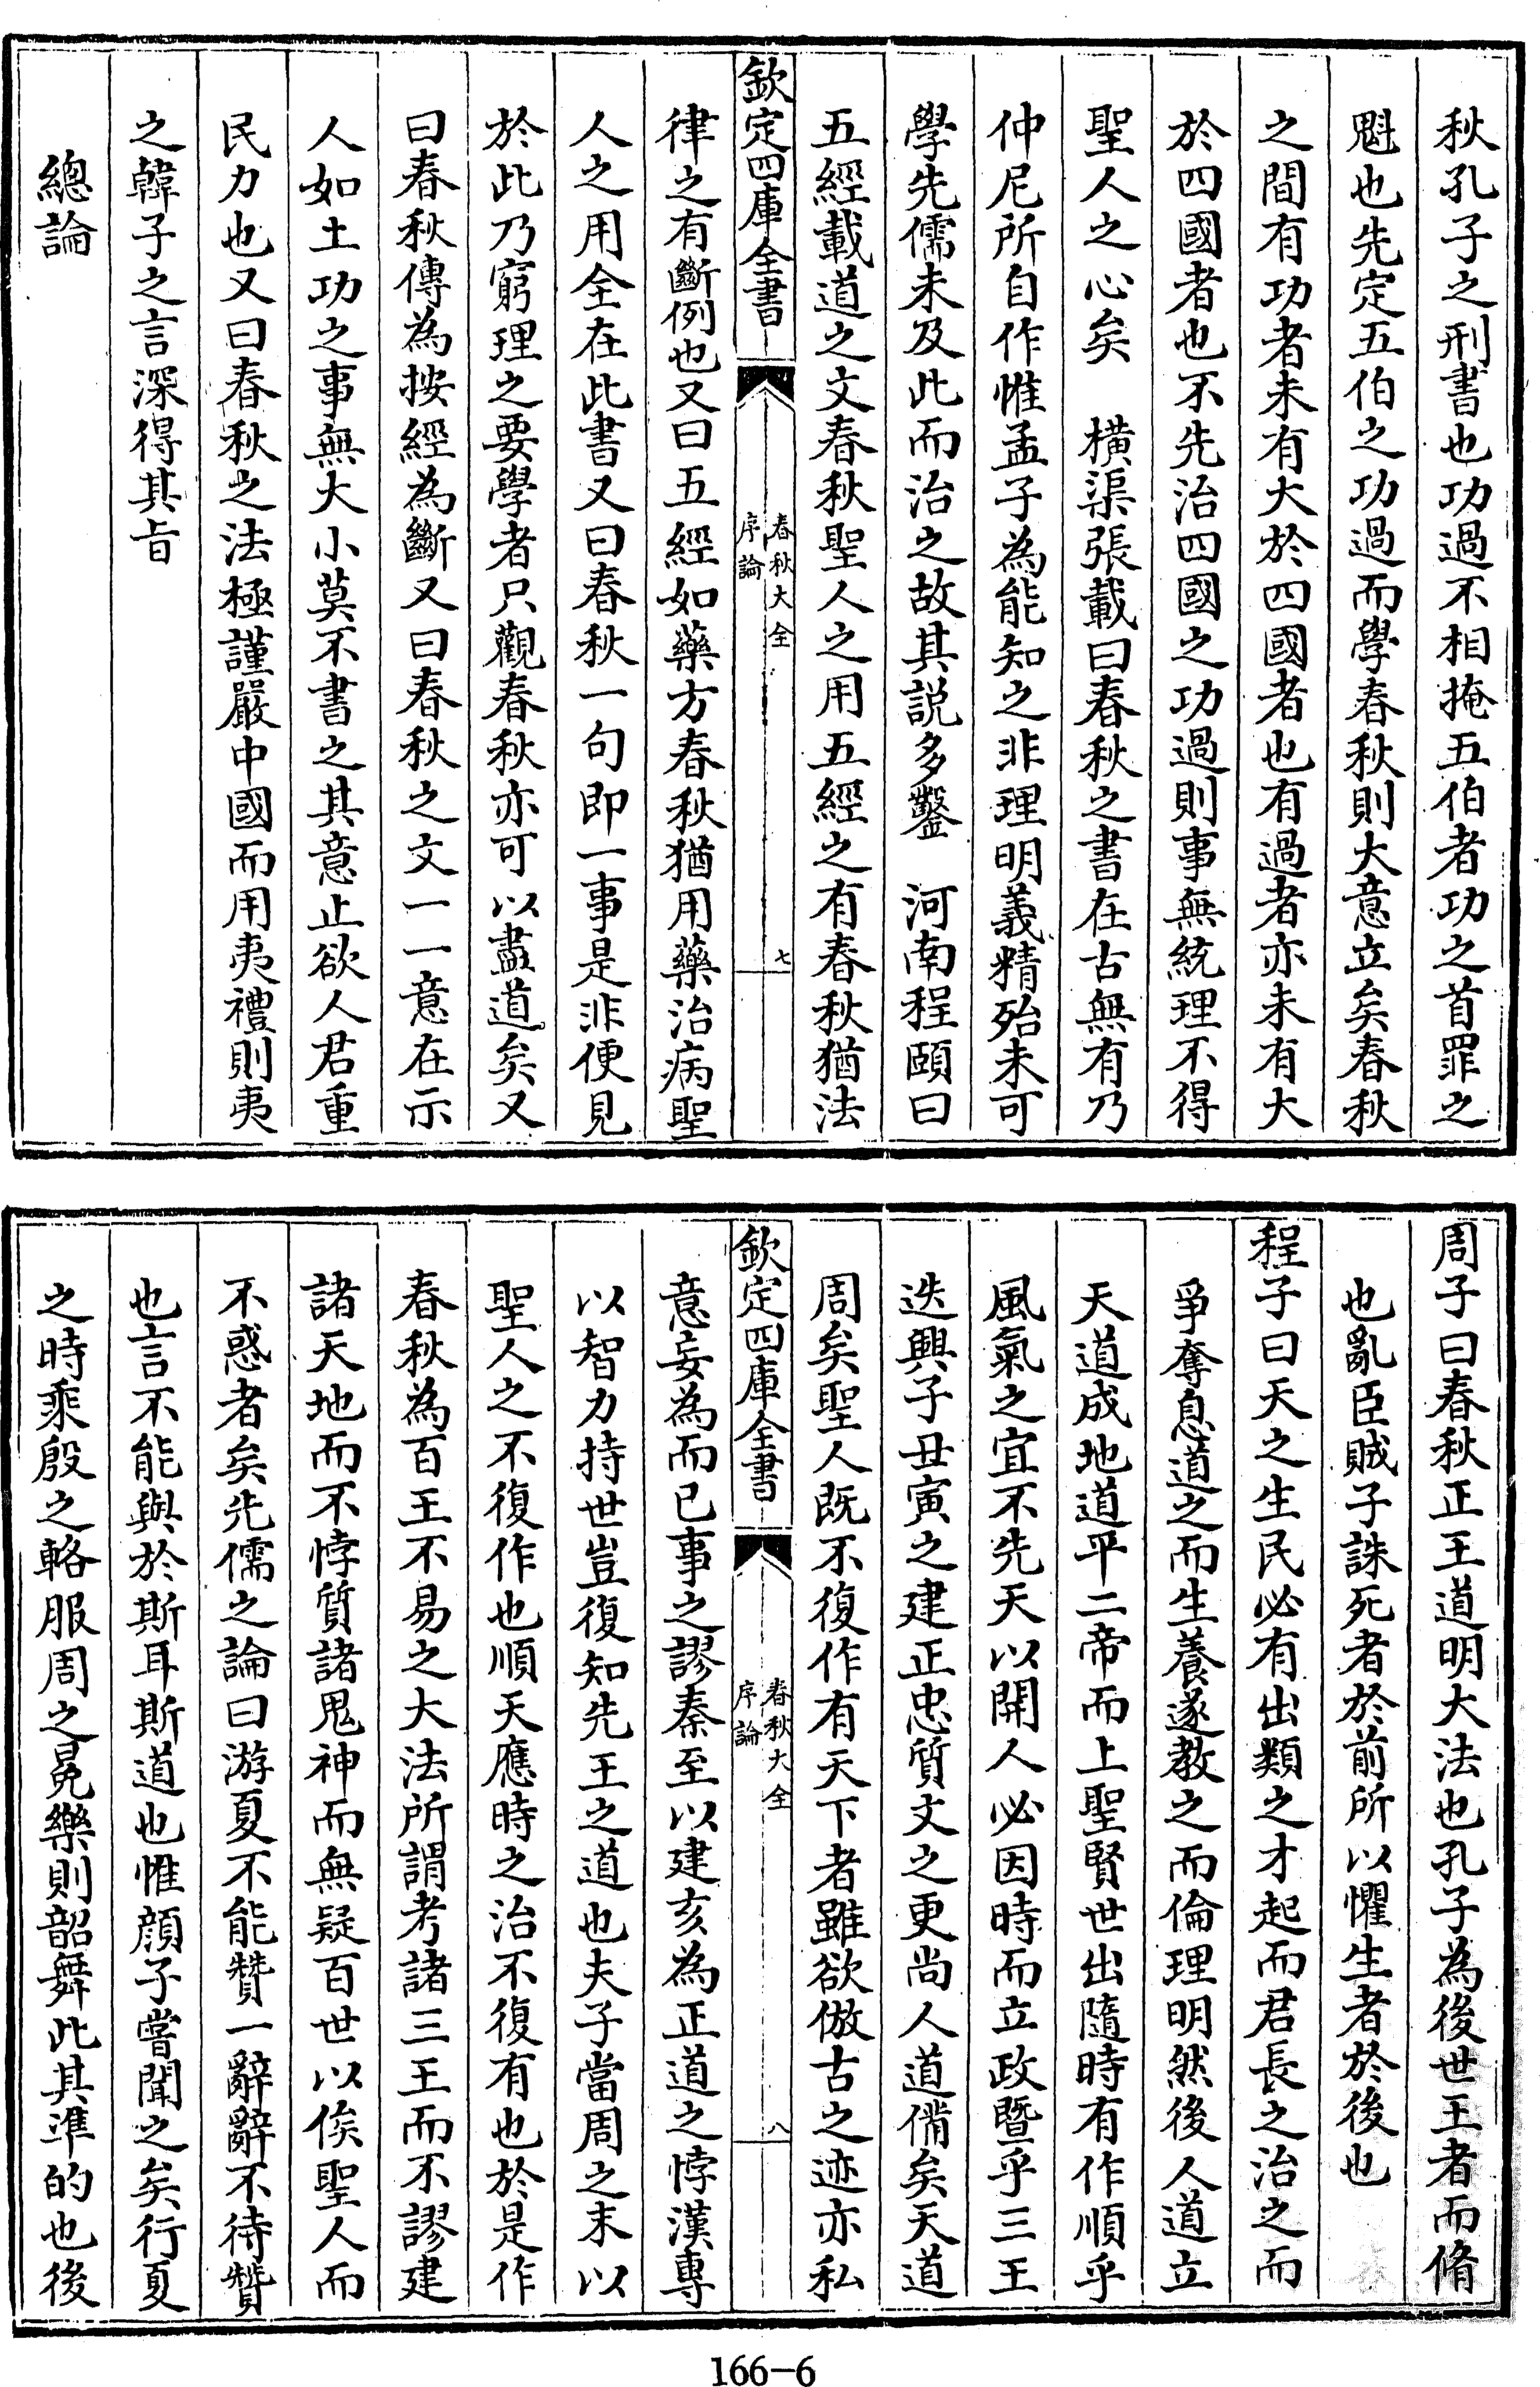 秋孔子之刑書也功過不相掩五伯者功之首罪之
魁也先定五伯之功過而學春秋則大意立矣春秋
之間有功者未有大於四國者也有過者亦未有大
於四國者也不先治四國之功過則事無統理不得
聖人之心矣　橫渠張載曰春秋之書在古無有乃
仲尼所自作惟孟子為能知之非理明義精殆未可
學先儒未及此而治之故其説多鑿　河南程頤曰
五經載道之文春秋聖人之用五經之有春秋猶法
欽定四庫全書
春秋大全
序論
七
律之有斷例也又曰五經如藥方春秋猶用藥治病聖
人之用全在此書又曰春秋一句即一事是非便見
於此乃窮理之要學者只觀春秋亦可以盡道矣又
曰春秋傳為按經為斷又曰春秋之文一一意在示
人如土功之事無大小莫不書之其意止欲人君重
民力也又曰春秋之法極謹嚴中國而用夷禮則夷
之韓子之言深得其旨
總論
周子曰春秋正王道明大法也孔子為後世王者而脩
也亂臣賊子誅死者於前所以懼生者於後也
程子曰天之生民必有出類之才起而君長之治之而
爭奪息道之而生養遂教之而倫理明然後人道立
天道成地道平二帝而上聖賢世出隨時有作順乎
風氣之宜不先天以開人必因時而立政暨乎三王
迭興子丑寅之建正忠質文之更尚人道備矣天道
周矣聖人既不復作有天下者雖欲倣古之迹亦私
欽定四庫全書
春秋大全
序論
八
意妄為而已事之謬秦至以建亥為正道之悖漢專
以智力持世豈復知先王之道也夫子當周之末以
聖人之不復作也順天應時之治不復有也於是作
春秋為百王不易之大法所謂考諸三王而不謬建
諸天地而不悖質諸鬼神而無疑百世以俟聖人而
不惑者矣先儒之論曰游夏不能贊一辭辭不待贊
也言不能與於斯耳斯道也惟顔子嘗聞之矣行夏
之時乘殷之輅服周之冕樂則韶舞此其準的也後
166-6